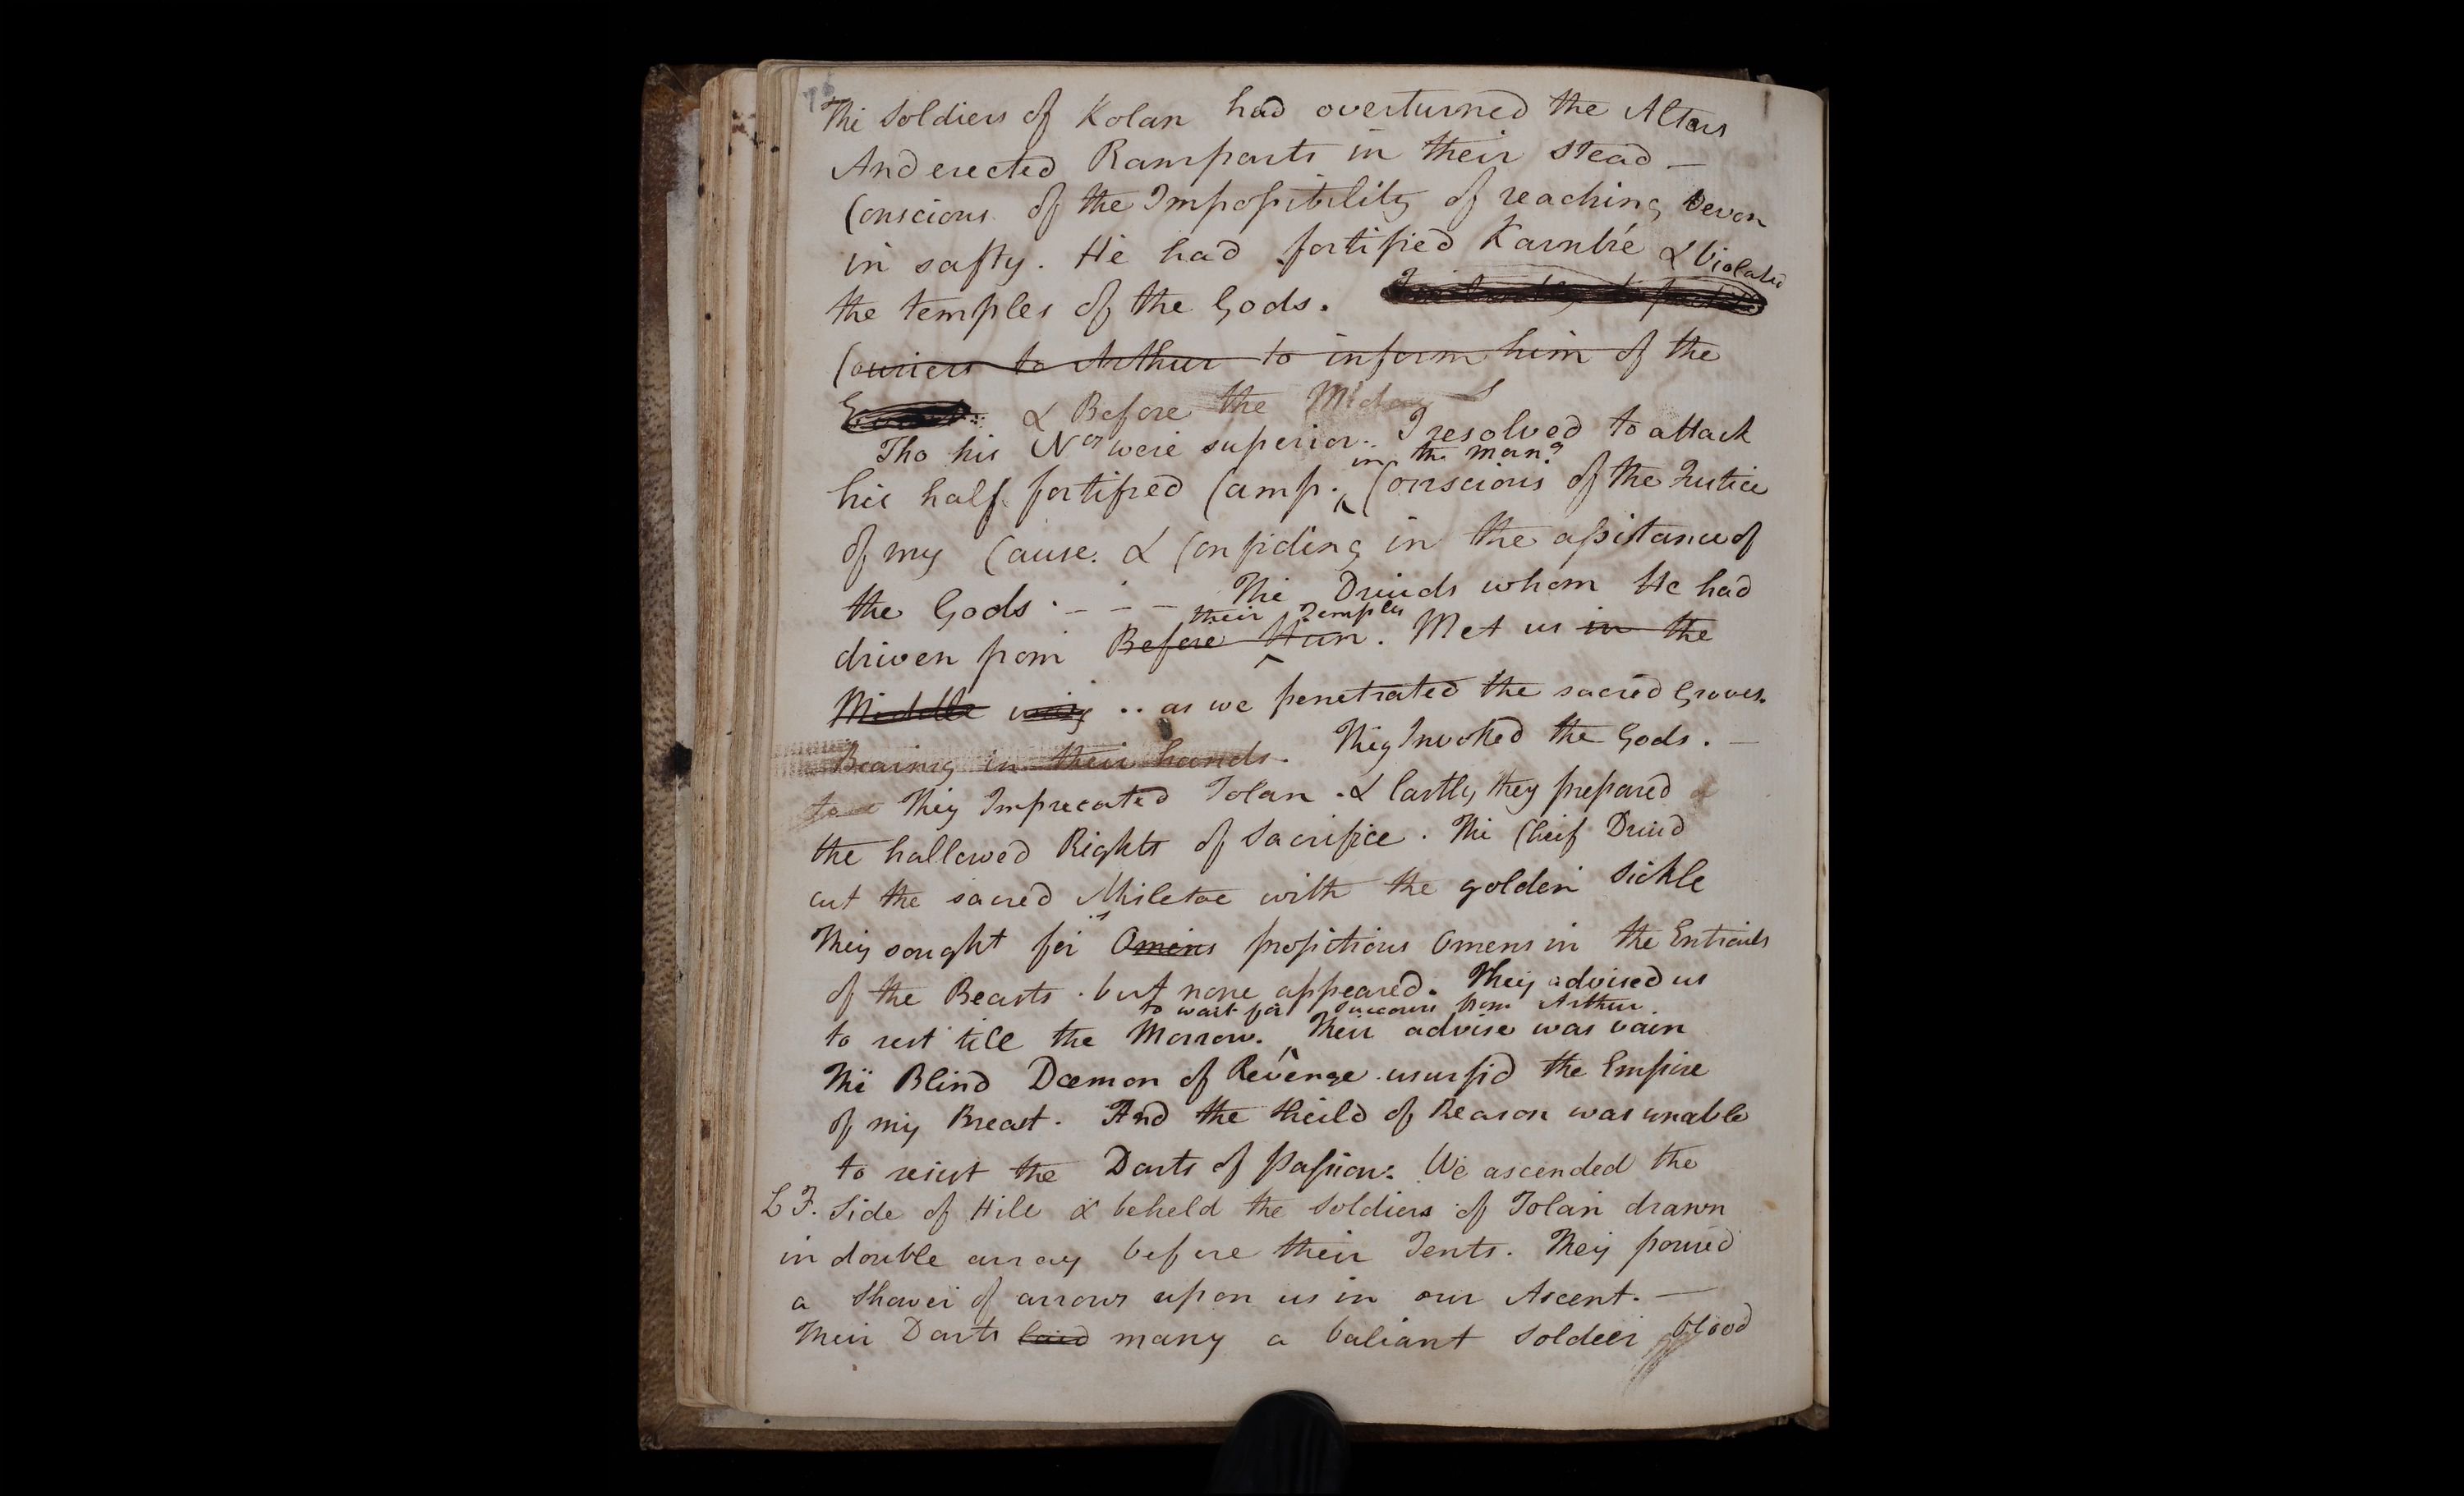 76
The Soldiers of Kolan had overturned the Altars
And erected Ramparts in their stead —
Conscious of the Impossibility of reaching Devon
in safty. He had fortified Karnbre & Violated
the temples of the Gods.
Couriers to Arthur to inform him of the
& Before the
Tho his Nos were superior. I resolved to attack
in the morng
his half fortified Camp. ^ Conscious of the Justice
of my Cause. & Confiding in the assistance of
the Gods. – – – The Druids whom He had
their Temples
driven from Before Him. Met us in the
Middle way .. as we penetrated the sacred Groves.
Bearing in their hands. They Invoked the Gods. —
They Imprecated Tolan. & lastly they prepared
the hallowed Rights of Sacrifice. The Cheif Druid
cut the sacred Misletoe with the golden Sickle
They sought for Omens propitious Omens in the Entrails
of the Beasts. but none appeared. They advised us
to wait for Succours from Arthur.
to rest till the Morrow. ^ Their advise was vain
The Blind Dæmon of Revenge usurpd the Empire
of my Breast. And the Sheild of Reason was unable
to resist the Darts of Passion. We ascended the
L F. Side of Hill & beheld the Soldiers of Tolan drawn
in double array before their Tents. They poured
a Shower of arrows upon us in our Ascent. —
Their Darts laid many a Valiant Soldeir blood